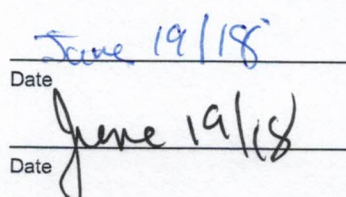 June 19/18
Date
June 19/18
Date